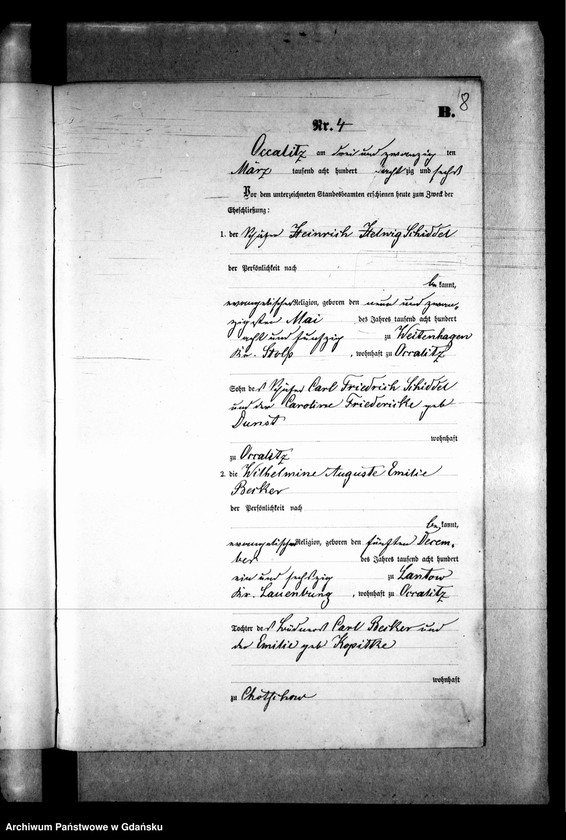 8
B.
Nr. 4
Occalitz am drei und zwanzig ten
März tausend acht hundert acht zig und sechs
Vor dem unterzeichneten Standesbeamten erschienen heute zum Zweck der
Eheschließung:
1. der Schäfer Heinrich Helwig Schiddel
der Persönlichkeit nach
be kannt,
evangelischer Religion, geboren den neun und zwan-
zigsten Mai des Jahres tausend acht hundert
acht und fünfzig zu Weitenhagen
Kr. Stolp, wohnhaft zu Occalitz
Sohn des Schäfer Carl Friedrich Schiddel
und der Caroline Friedericke geb
Dunst
wohnhaft
zu Occalitz
2. die Wilhelmine Auguste Emilie
Becker
der Persönlichkeit nach
be kannt,
evangelischer Religion, geboren den fünften Decem-
ber des Jahres tausend acht hundert
ein und sechszig zu Lantow
Kr. Lauenburg, wohnhaft zu Occalitz
Tochter des Büdners Carl Becker und
der Emilie geb Kopitke
wohnhaft
zu Chotschow
Archiwum Państwowe w Gdańsku